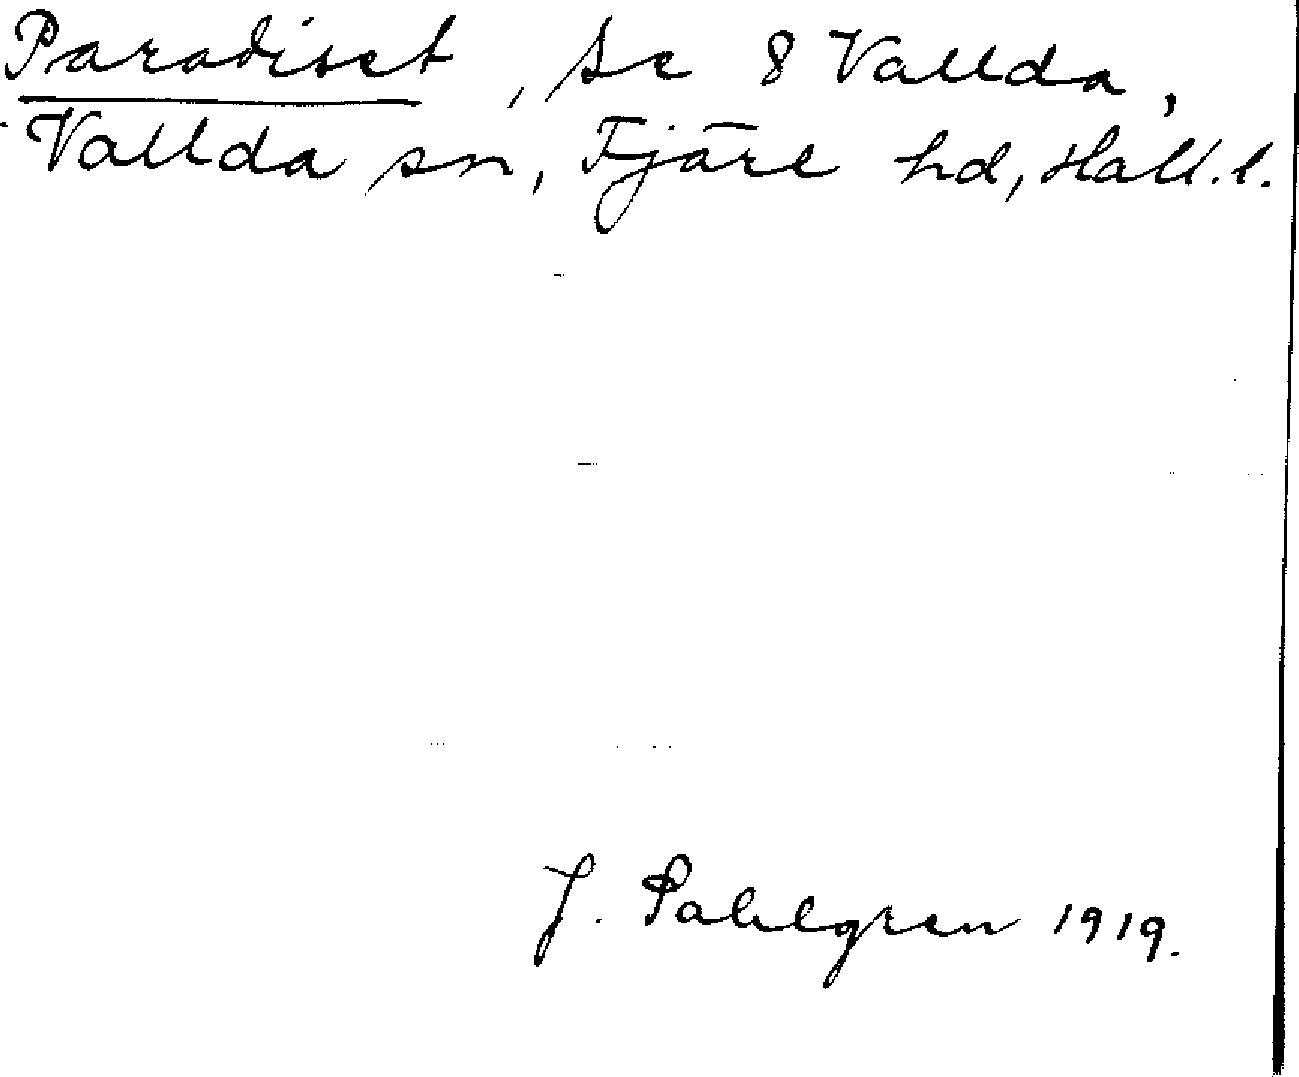 Paradiset, se 8 Vallda,
Vallda sn, Fjäre hd, Hall. l.
J. Pahlgren 1919.